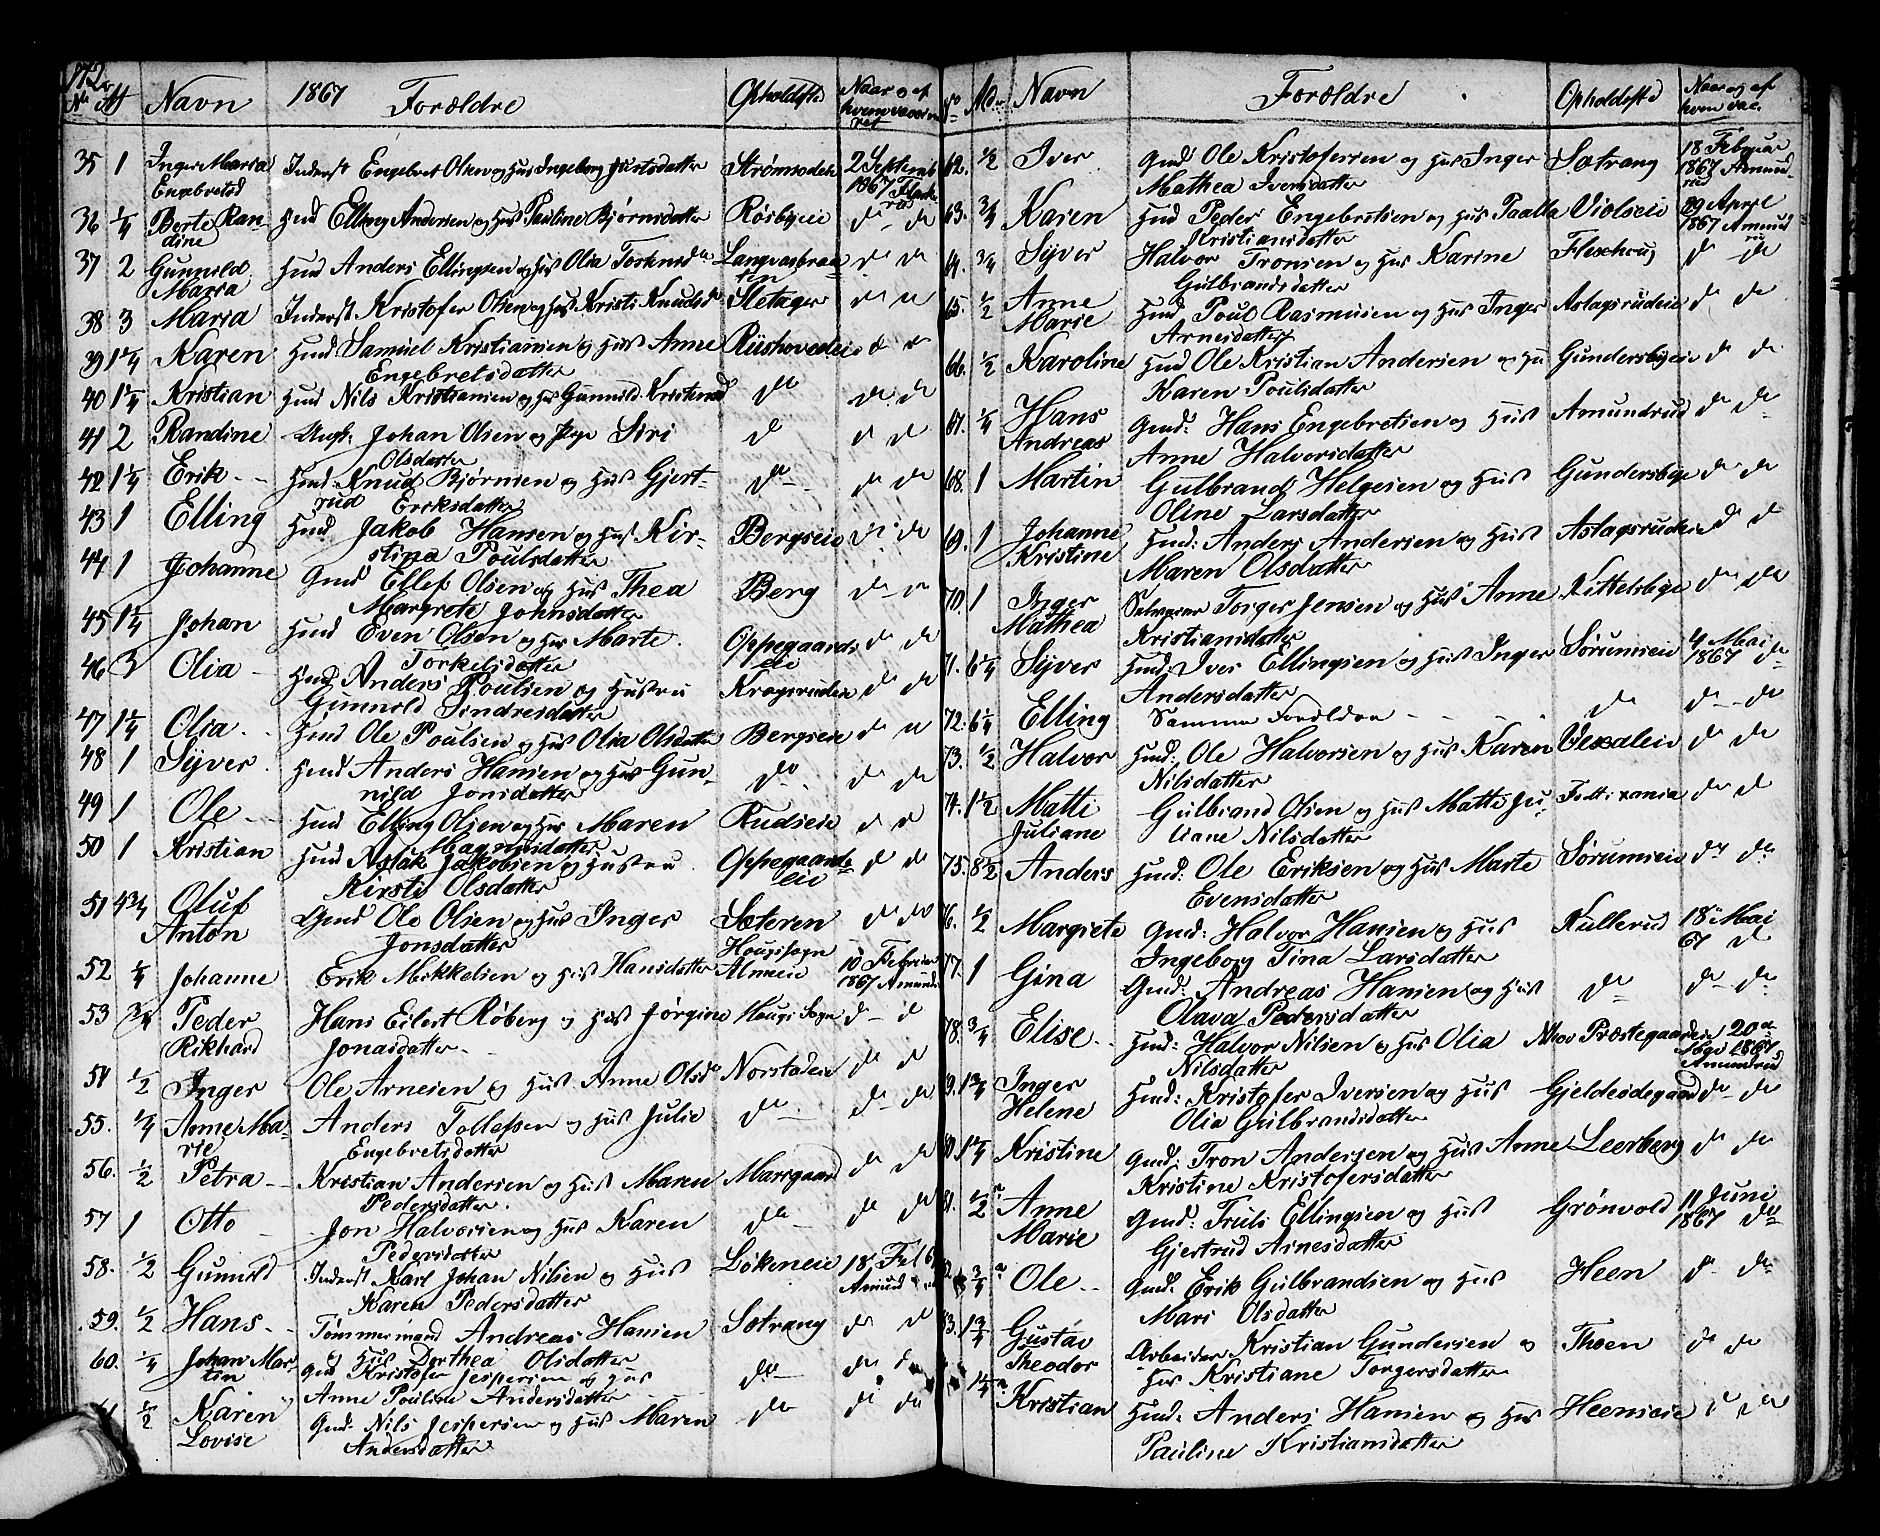 172
No At Navn 1867 Forældre Opholdssted Naar og af
hvem vaccine
ret
35 1 Inger Maria Inderst Engebret Olsen og Hus Ingeborg Justsdatter Strømsodeie 2 Septemb
Engebretsd 1867
36 1/4 Berte Ran- Hmd Elling Andersen og Hus Pauline Bjørnsdatter Røsbyeie do do
dine
37 2 Gunnild Hmd Anders Ellingsen og Hus Olia do do
Maria
38 3 Maria Inderst Kristofer Olsen og Hus Kristi Knudsdr Sletager do do
39 1 1/4 Karen Hmd Samuel Kristiansen og Hus Anne Riishovedeie do do
Engebretsdatter
40 1 1/4 Kristian Hmd Nils Kristiansen og Hus Gunnild do do do
41 2 Randine Ungk: Johan Olsen og Pige Siri do do do
Olsdatter
42 1 1/4 Erik Hmd: Knud Bjørnsen og Hus Gjert- do do do
rud Eriksdatter
43 1 Elling Hmd Jakob Hansen og Hus Kir- Bergseie do do
stina Poulsdatter
44 1 Johanne Gmd Ellef Olsen og Hus Thea Berg do do
Margrete Johnsdatter
45 1 1/4 Johan Hmd Even Olsen og Hus Marte Oppegaards do do
Torkelsdatter eie
46 3 Olia Hmd Anders Poulsen og Hustru Kragsrudeie do do
Gunnild Sindresdatter
47 1 1/4 Olia Hmd Ole Poulsen og Hus Olia Olsdatter Bergseie do do
48 1 Syver Hmd Anders Hansen og Hus Gun- do do do
nild Jonsdatter
49 1 Ole Hmd Elling Olsen og Hus Maren Rudseie do do
Magnusdatter
50 1 Kristian Hmd Aslak Jakobsen og Hustru Oppegaards do do
Kirsti Olsdatter eie
51 4 3/4 Oluf Gmd Ole Olsen og Hus Inger Sæteren do do
Anton Jonsdatter Hougssogn
52 1/4 Johanne Erik Mikkelsen og Hus Hansdatter Almeie 10 Februar
1867 Amund
53 3/4 Peder Hans Eilert Røberg og Hus Jørgine Hougs Sogn do do
Rikhard Jonasdatter
54 1/2 Inger Ole Arnesen og Hus Anne Olsdr Norstadeie do do
55. 1/4 Anne Ma- Anders Tollefsen og Hus Julie do do do
rie Engebretsdatter
56. 1/2 Petra Kristian Andersen og Hus Maren Marigaard do do
Pedersdatter.
57 1 Otto Jon Halvorsen og Hus Karen do do do
Pedersdatter
58. 1/2 Gunnild Inderst Karl Johan Nilsen og Hus Løkeneie 18 Feb 67
Karen Pedersdatter Amund
59. 1/2 Hans Tømmermand Andreas Hansen Sotrang do do
og Hus Dorthea Olsdatter
60. 1/4 Johan Mar- Gmd Kristofer Jespersen og Hus do do
tin Anne Pouline Andersdatter
61 1/2 Karen Gmd: Nils Jespersen og Hus Maren do do do
Lovise Andersdatter
No Al Navn Forældre Opholdssted Naar og af
hvem vac.
62. 1/2 Iver Gmd: Ole Kristofersen og Hus Inger Sætrang 18 Februar
Mathea Iversdatter 1867 Amund-
rud
63. 3/4 Karen Hmd Peder Engebretsen og Hus Paalla Violseie 29 April
Kristiansdatter 1867 Amund
rud
64. 3/4 Syver Halvor Tronsen og Hus Karine Fleskerud do do
Gulbrandsdatter
65. 1/2 Anne Hmd: Poul Rasmusen og Hus Inger Aslagsrudeie do do
Marie Arnesdatter
66. 1/2 Karoline Hmd Ole Kristian Andersen og Hu Gundersbyeie do do
Karen Poulsdatter
67. 1/4 Hans Gmd: Hans Engebretsen og Hus Amundrud do do
Andreas Anne Halvorsdatter
68. 1 Martin Gulbrand Helgesen og Hus Gundersbye do do
Oline Larsdatter
69. 1 Johanne Hmd: Anders Andersen og Hus Aslagsrudeie do do
Kristine Maren Olsdatter
70. 1 Inger Selveier Torger Jensen og Hus Anne Kittelsbye do do
Mathea Kristiansdatter
71. 6 1/4 Syver Hmd: Iver Ellingsen og Hus Inger Sørumseie 4 Mai
Andersdatter 1867 do
72. 6 1/4 Elling Samme Forældre do do do
73. 1/2 Halvor Hmd: Ole Halvorsen og Hus Karen Vexaleie do do
Nilsdatter
74. 1 1/2 Matti Gulbrand Olsen og Hus Matte Ju- do do
Juliane liane Nilsdatter
75. 8 1/2 Anders Hmd: Ole Eriksen og Hus Marte Sørumseie do do
Evensdatter
76. 1/2 Margrete Gmd: Halvor Hansen og Hus Kullerud 18 Mai
Ingeborg Tina Larsdatter 67 do
77. 1 Gina Gmd: Andreas Hansen og Hus do do do
Olava Pedersdatter
78. 3/4 Elise Hmd: Halvor Nilsen og Hus Olia Moe Præstegaardeie 20de
Nilsdatter Mai 1867
Amundrud
79. 1 3/4 Inger Hmd: Kristofer Iversen og Hus Gjeldesdegaard do do
Helene Olia Gulbrandsdatter
80. 1 1/4 Kristine Gmd: Tron Andersen og Hus Anne Leerberg do do
Kristine Kristofersdatter
81. 1/2 Anne Gmd: Truls Ellingsen og Hus Grønvold 11 Juni
Marie Gjertrud Arnesdatter 1867 do
82 3/4 Ole Gmd: Erik Gulbrandsen og Hus Heen do do
Mari Olsdatter
83. 1 3/4 Gustav Arbeider Kristian Gundersen og Thoen do do
Theodor Hus Kristiane Torgersdatter
1 1/4 Kristian Hmd: Anders Hansen og Hus Heenseie do do
Pauline Kristiansdatter